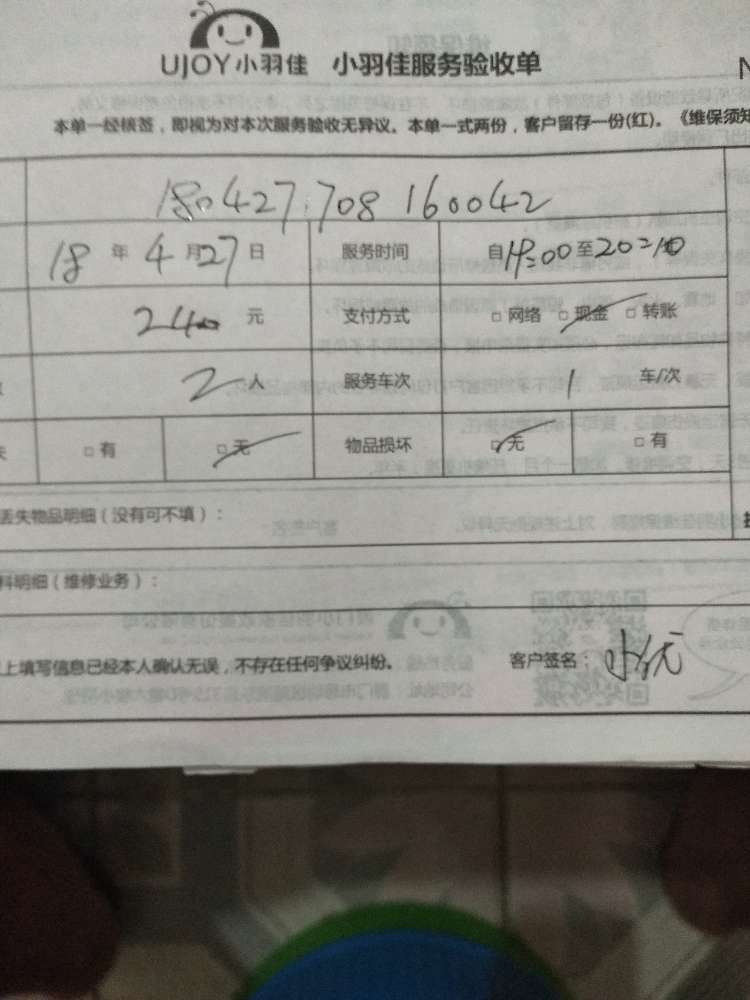 UJOY小羽佳 小羽佳服务验收单
N
本单一经核签，即视为对本次服务验收无异议。本单一式两份，客户留存一份(红)。《维保须知
180427708160042
18 年 4 月 27 日 服务时间 自19:00至20:10
240 元 支付方式 □ 网络 □ 现金 □ 转账
2 人 服务车次 1 车/次
□ 有 □ 无 物品损坏 □ 无 □ 有
丢失物品明细（没有可不填）：
料明细（维修业务）：
上填写信息已经本人确认无误，不存在任何争议纠纷。 客户签名：